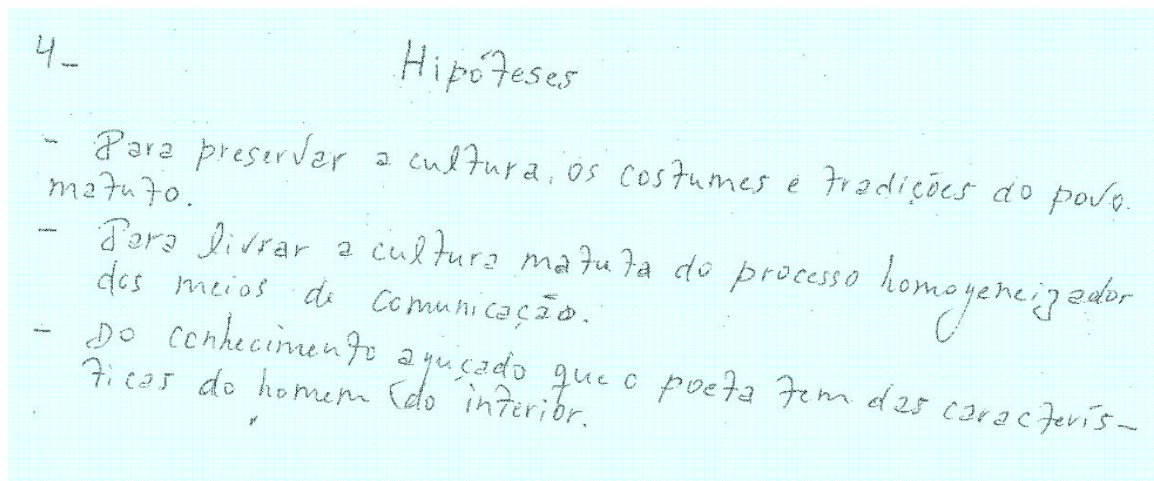 4-
Hipóteses
- Para preservar a cultura, os costumes e tradições do povo
matuto.
- Para livrar a cultura matuta do processo homogeneizador
dos meios de comunicação.
- Do conhecimento aguçado que o poeta tem das caracterís-
ticas do homem (do interior.